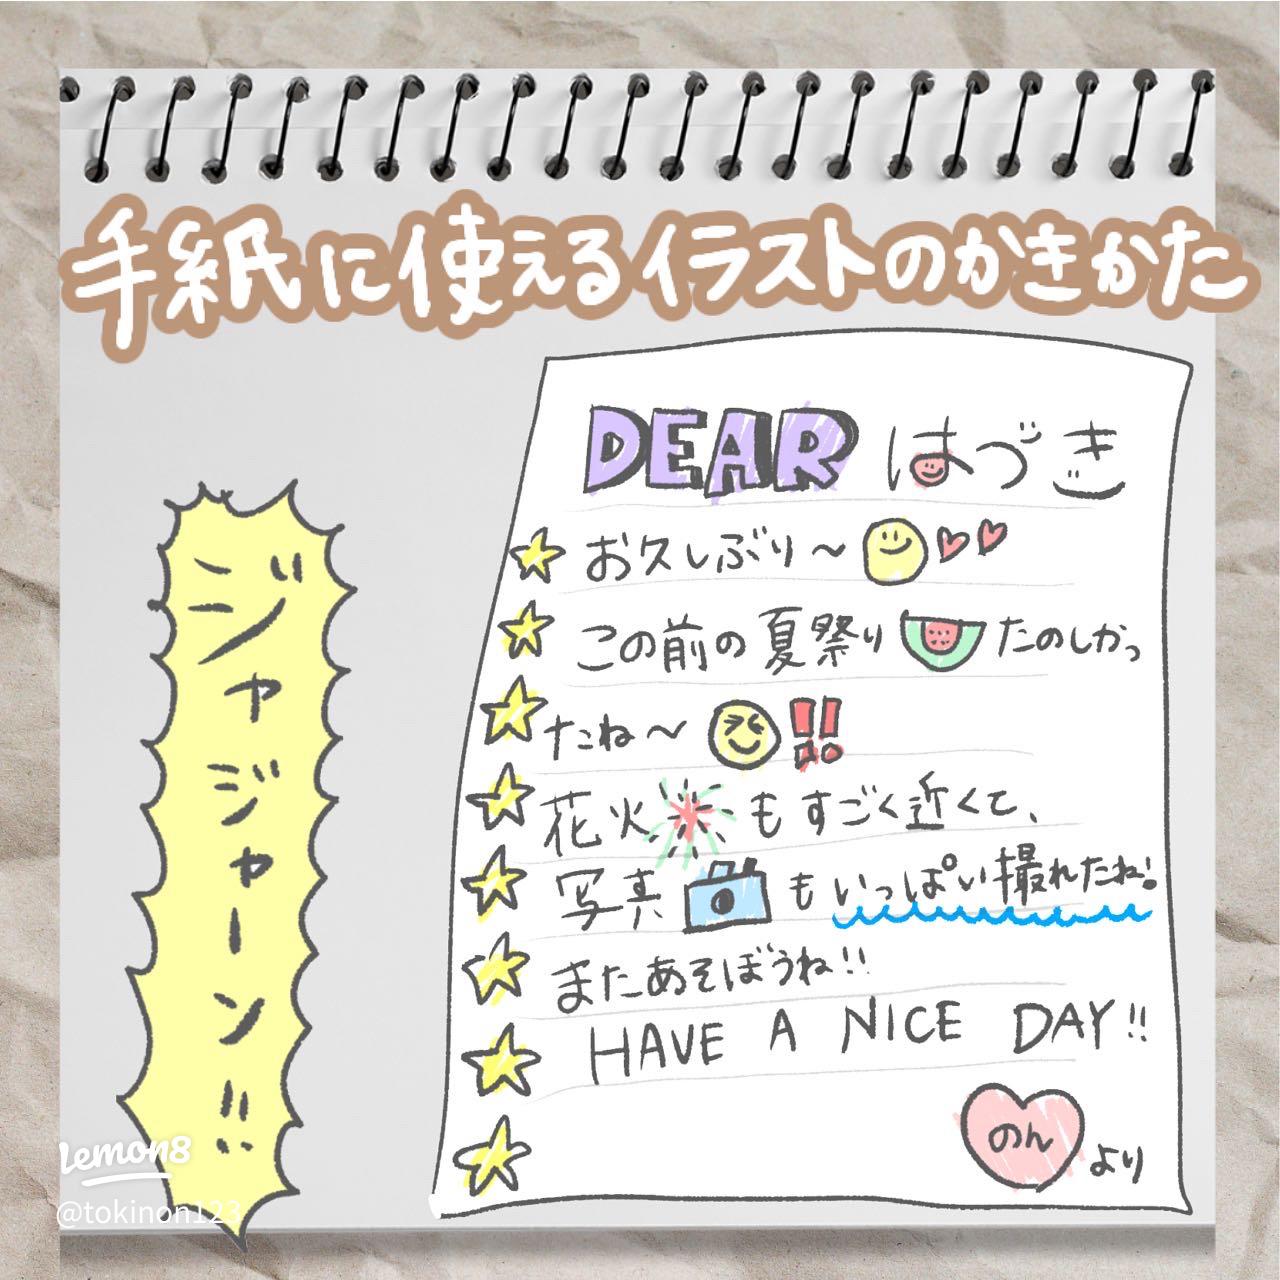 手紙に使えるイラストのかきかた
ジャジャーン!!
DEAR はづき
お久しぶり～
この前の夏祭り たのしかっ
たね～ !!
花火 もすごく近くて、
写真 もいっぱい撮れたね!
またあそぼうね!!
HAVE A NICE DAY!!
のん より
Lemon8
@tokinon123